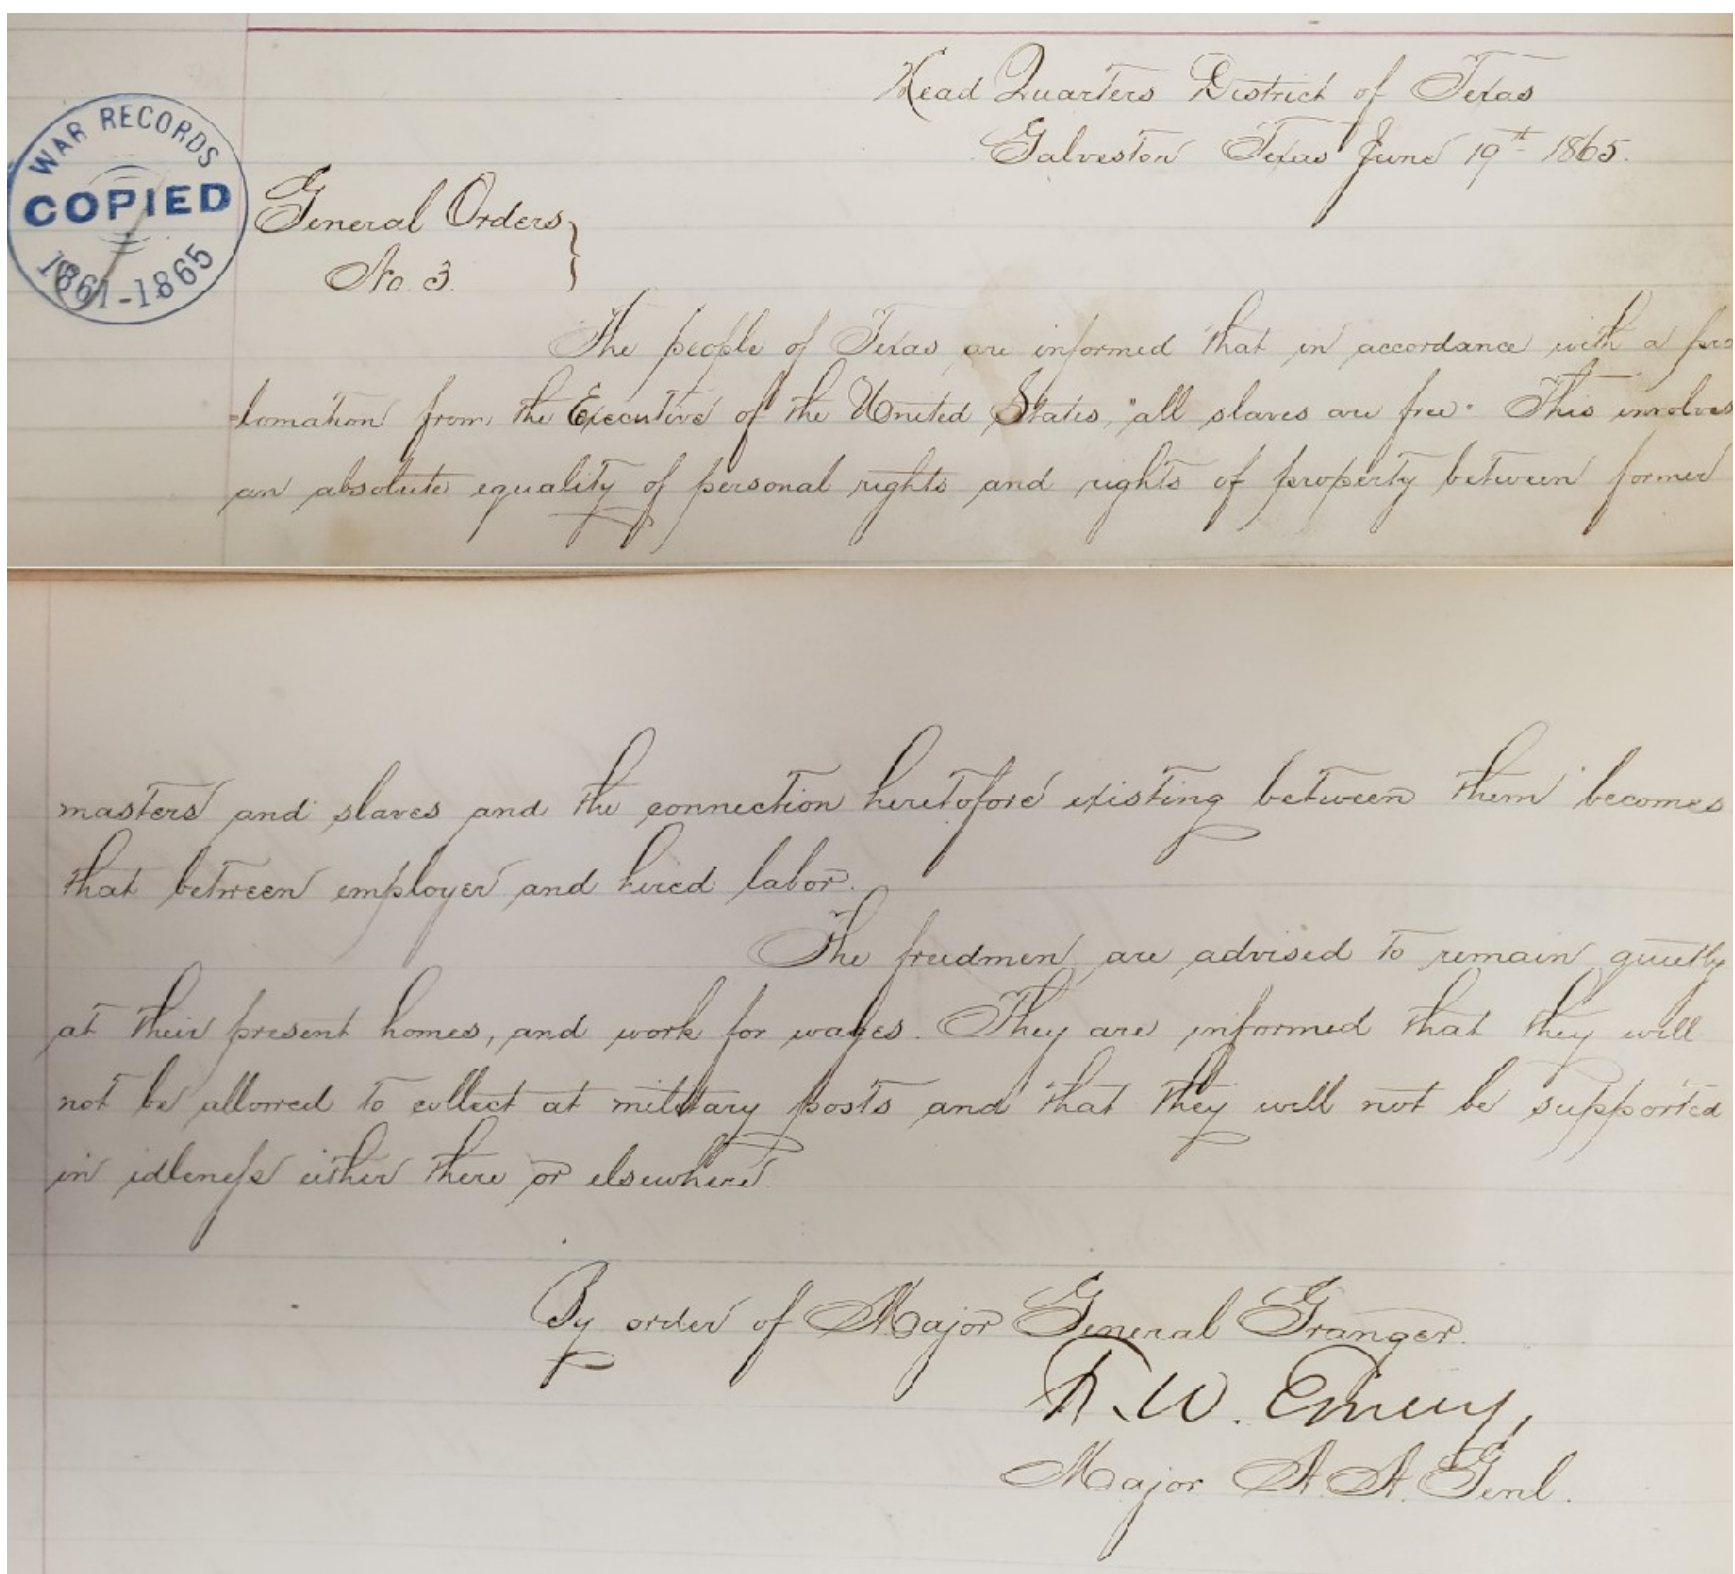 Head Quarters District of Texas
Galveston Texas June 19th 1865.
WAR RECORDS
COPIED
1861-1865
General Orders
No. 3.
The people of Texas are informed that in accordance with a pro
=lamation from the Executive of the United States, "all slaves are free". This involves
an absolute equality of personal rights and rights of property between former
masters and slaves and the connection heretofore existing between them becomes
that between employer and hired labor.
The freedmen are advised to remain quietly
at their present homes, and work for wages. They are informed that they will
not be allowed to collect at military posts and that they will not be supported
in idleness either there or elsewhere
By order of Major General Granger.
F. W. Emery,
Major A. A. Genl.